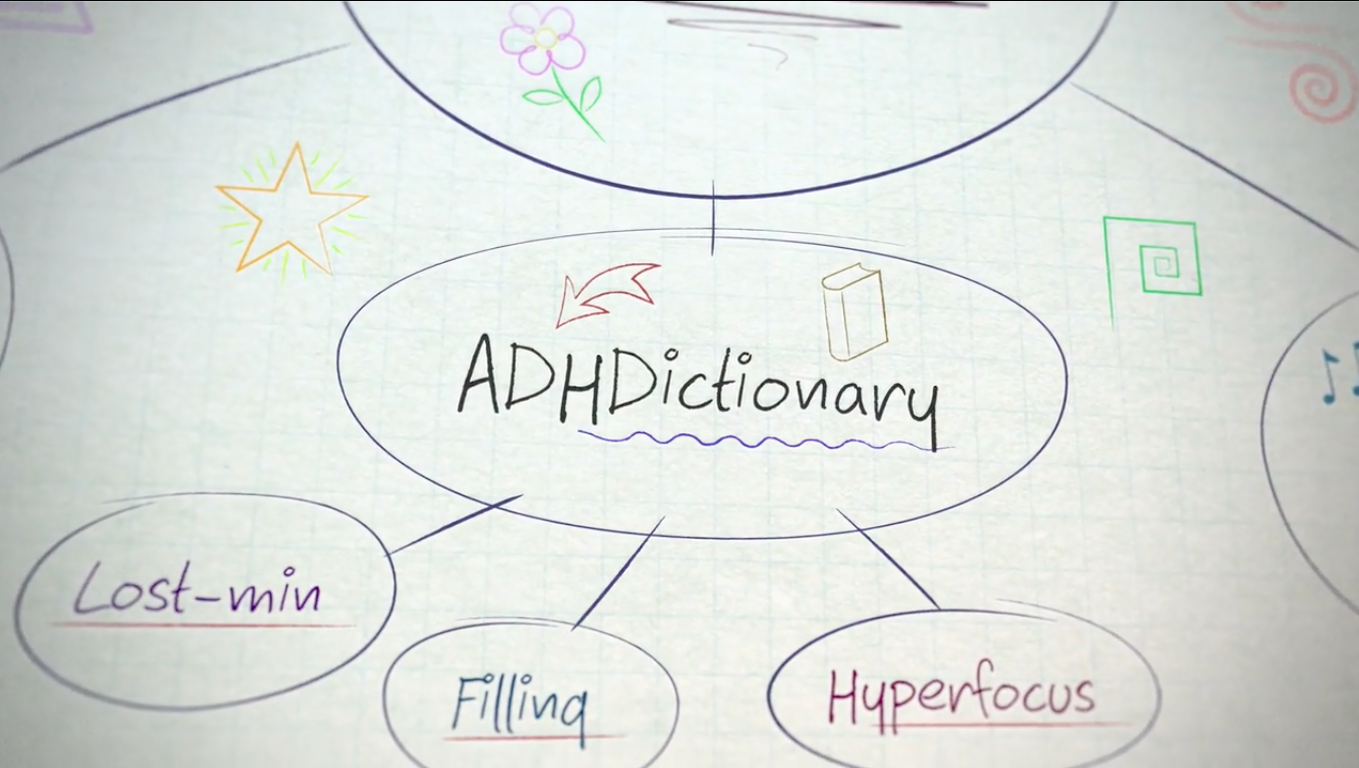 ADHDictionary
Lost-min
Filling
Hyperfocus